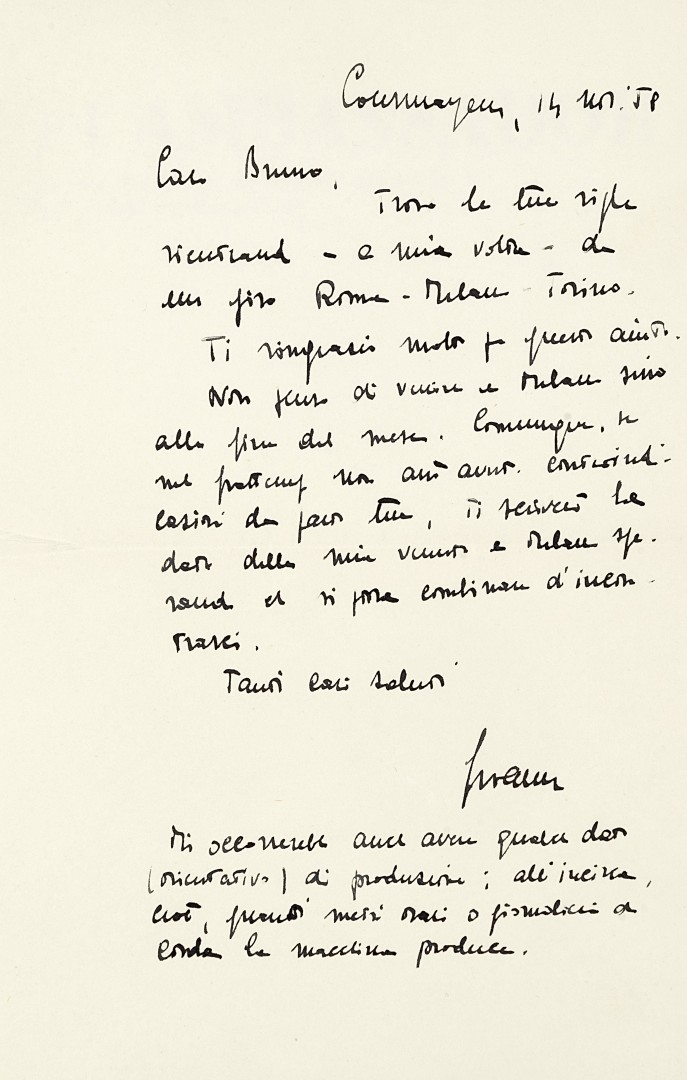 Courmayeur, 14 nov. 58
Caro Bruno,
Trovo le tue righe
rientrando - a mia volta - da
un giro Roma - Milano - Torino.
Ti ringrazio molto per questo aiuto.
Non penso di venire a Milano sino
alla fine del mese. Comunque, se
nel frattempo non avrò avuto controindi-
cazioni da parte tua, ti scriverò la
data della mia venuta a Milano spe-
rando che si possa combinare d'incon-
trarci.
Tanti cari saluti
Mi occorrerebbe anche avere qualche dato
(orientativo) di produzione; all'incirca,
cioè, quanti metri orari o giornalieri di
corda la macchina produce.